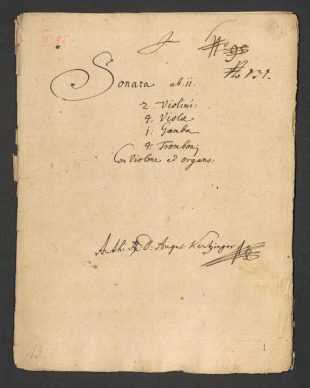 N: 95
No 95
No 131.
Sonata ab: 11:
2. Violini:
4: Viola
1: Gamba
4. Tromboni
Con Violone et organo:
Auth: D: Augus: Kertzinger
13
1